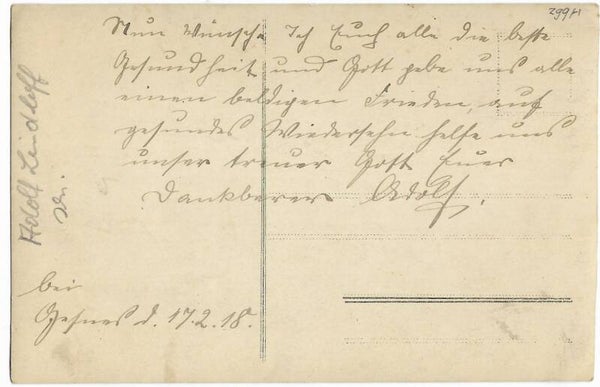 299H
Nun Wünsche Ich Euch alle die beste
Gesundheit und Gott gebe uns alle
einen beldigen Frieden, auf
gesundes Wiedersehn helfe uns
unser treuer Gott Euer
Dankberer Adolf.
bei
Gesnes d. 17.2.18.
Adolf